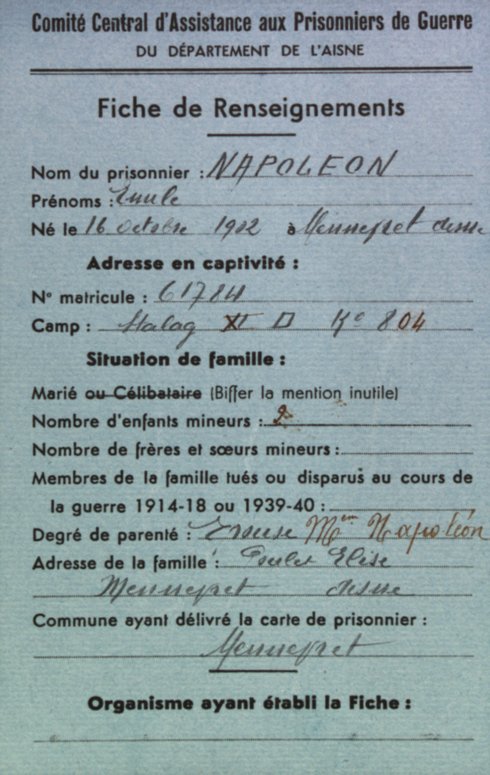 Comité Central d'Assistance aux Prisonniers de Guerre
DU DÉPARTEMENT DE L'AISNE
Fiche de Renseignements
Nom du prisonnier : NAPOLEON
Prénoms : Emile
Né le 16 octobre 1902 à Mennevret Aisne
Adresse en captivité :
N° matricule : 61784
Camp : Stalag XI D Kº 804
Situation de famille :
Marié ou Célibataire (Biffer la mention inutile)
Nombre d'enfants mineurs : 2
Nombre de frères et sœurs mineurs :
Membres de la famille tués ou disparus au cours de
la guerre 1914-18 ou 1939-40 :
Degré de parenté : Epouse Mme Napoléon
Adresse de la famille : Elise
Mennevret Aisne
Commune ayant délivré la carte de prisonnier :
Mennevret
Organisme ayant établi la Fiche :